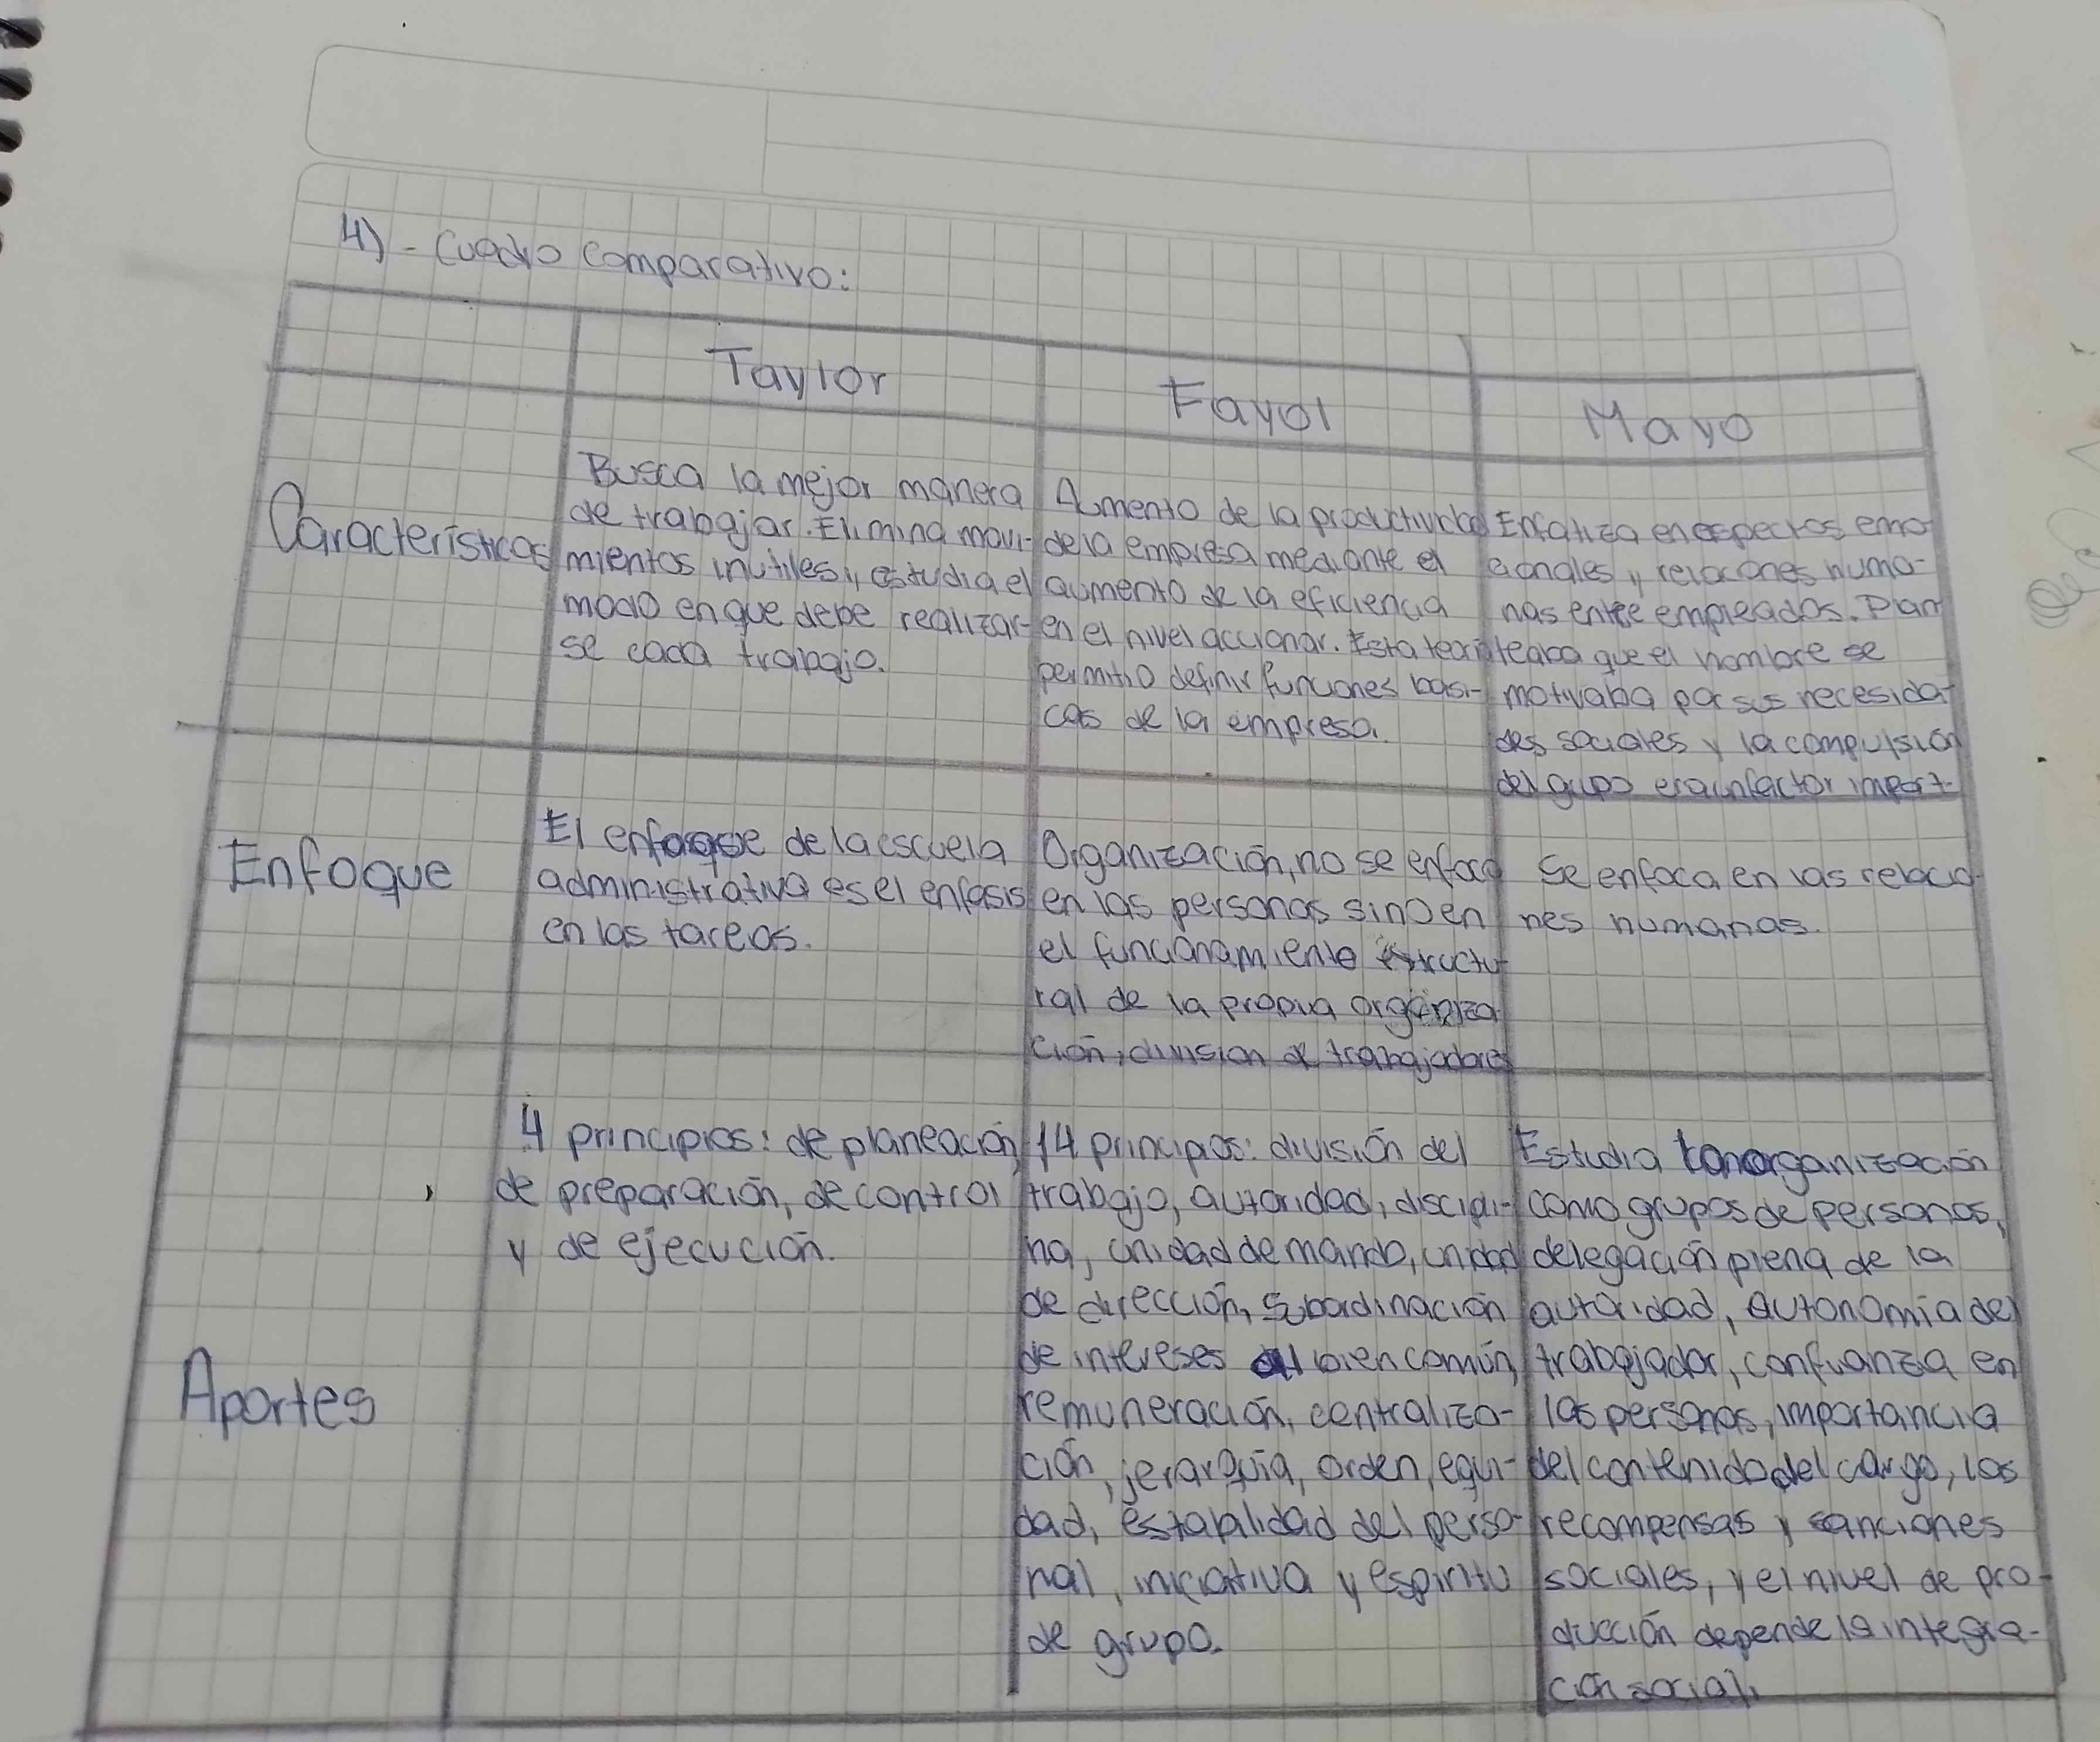 4) - Cuadro comparativo:
Taylor
Fayol
Mayo
Características
Busca la mejor manera
de trabajar. Elimina movi-
mientos inutiles y estudia el
modo en que debe realizar-
se cada trabajo.
Aumento de la productividad
de la empresa mediante el
aumento de la eficiencia
en el nivel accionar. Esta teoria
permitio definir funciones basi-
cas de la empresa.
Enfatiza en aspectos emo-
cionales y relaciones huma-
nas entre empleados. Plan
teaba que el hombre se
motivaba por sus necesida-
des sociales y la compulsión
del grupo era un factor import.
Enfoque
El enfoque de la escuela
administrativa es el enfasis
en las tareas.
Organización, no se enfoca
en las personas sino en
el funcionamiento estructu-
ral de la propia organiza
ción, division de trabajadores
Se enfoca en las relacio-
nes humanas.
Aportes
4 principios: de planeación,
de preparación, de control
y de ejecución.
14 principios: división del
trabajo, autoridad, discipli-
na, unidad de mando, unidad
de dirección, subordinación
de intereses al bien común,
remuneración, centraliza-
ción, jerarquia, orden, equi-
dad, estabilidad del perso-
nal, iniciativa y espiritu
de grupo.
Estudia la organización
como grupos de personas,
delegación plena de la
autoridad, autonomía del
trabajador, confianza en
las personas, importancia
del contenido del cargo, las
recompensas y sanciones
sociales, y el nivel de pro-
ducción depende la integra-
ción social.